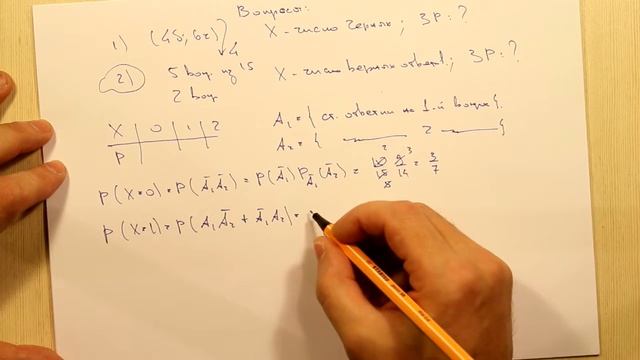 Вопросы:
1) (4б; 6ч) 4 X - число черных; ЗР: ?
2) 5 вопр. из 15 X - число верных ответов; ЗР: ?
2 вопр.
X 0 1 2 A₁ = { ст. ответил на 1-й вопрос }.
P A₂ = { —— 2 —— }
P(X=0) = P(Ā₁Ā₂) = P(Ā₁)P_Ā₁(Ā₂) = 10/15 · 9/14 = 3/7
P(X=1) = P(A₁Ā₂ + Ā₁A₂) =